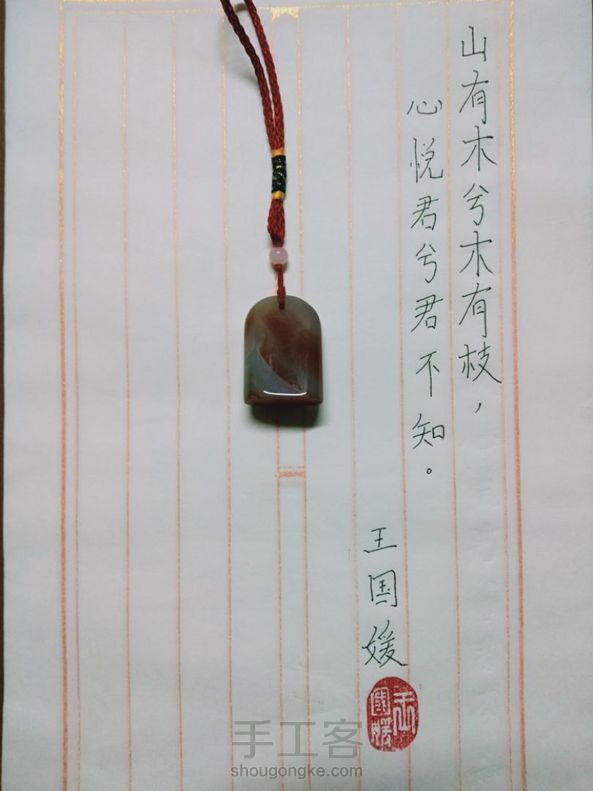 山有木兮木有枝，
心悦君兮君不知。
王国媛
王国媛
手工客
shougongke.com